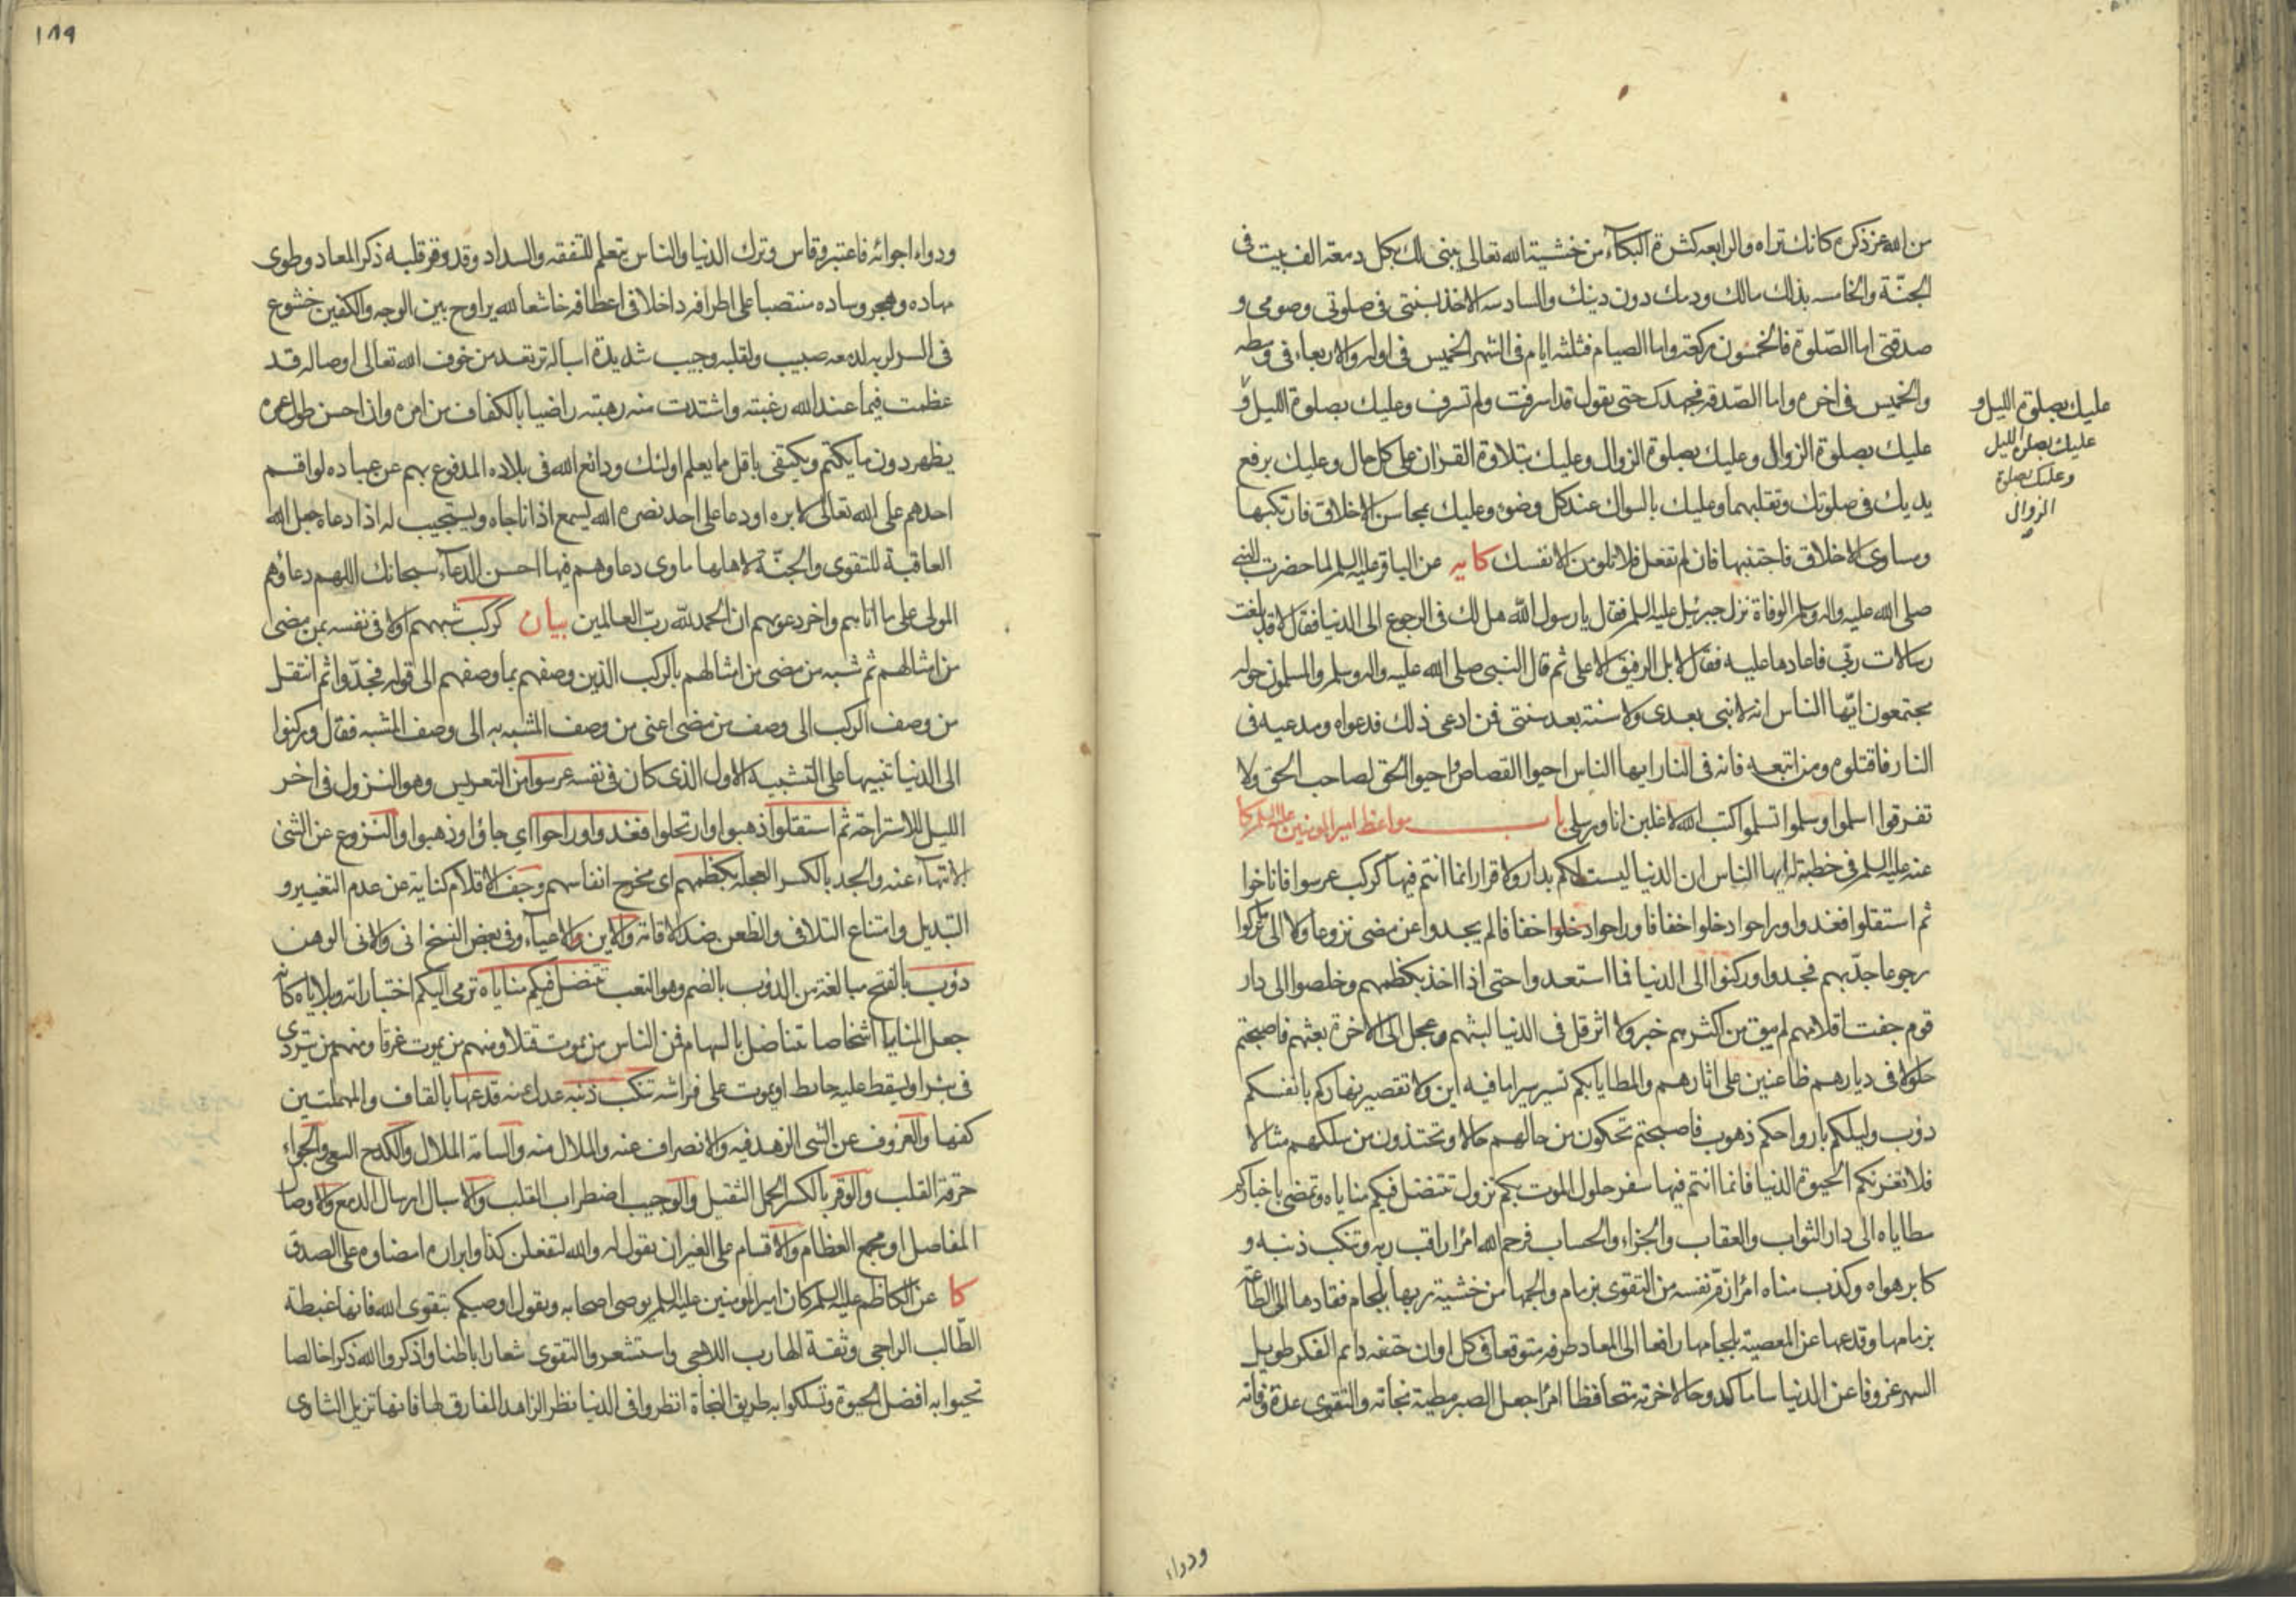 من الله عز ذكره كانك تراه والرابعه كثرة البكاء من خشية الله تعالى يبنى لك بكل دمعة الف بيت فى
الجنّة والخامسه بذلك مالك ودمك دون دينك والسادسه الاخذ بسنتى فى صلوتى وصومى و
صدقتى اما الصّلوة فالخمسون ركعة واما الصيام فثلثه ايام فى الشهر الخميس فى اوله والاربعاء فى وسطه
والخميس فى اخره واما الصّدقه فجهدك حتى يقول قد اسرفت ولم تسرف وعليك بصلوة الليل و
عليك بصلوة الزوال وعليك بصلوة الزوال وعليك بتلاوة القران على كل حال وعليك برفع
يديك فى صلوتك وتقلبهما وعليك بالسواك عند كل وضوء وعليك بمحاسن الاخلاق فارتكبها
ومساوى الاخلاق فاجتنبها فان لم تفعل فلا تلومن الا نفسك كا يه عن الباقر عليه السلم لما حضرت النبى
صلى الله عليه واله وسلم الوفاة نزل جبرئيل عليه السلم فقال يا رسول الله هل لك فى الرجوع الى الدنيا فقال لا قد بلغت
رسالات ربّى فاعادها عليه فقال لا بل الرفيق الاعلى ثم قال النبى صلى الله عليه واله وسلم والمسلمون حوله
مجتمعون ايّها الناس انه لا نبى بعدى ولا سنة بعد سنتى فمن ادعى ذلك فدعواه ومدعيه فى
النار فاقتلوه ومن اتبعه فانه فى النار ايها الناس احيوا القصاص واحيوا الحق لصاحب الحق ولا
تفرقوا اسلموا وسلموا تسلموا كتب الله لاغلبن انا ورسلى باب مواعظ امير المومنين عليه السلم كا
عنه عليه السلم فى خطبة له ايها الناس ان الدنيا ليست لكم بدار ولا قرار انما انتم فيها كركب عرسوا فاناخوا
ثم استقلوا فغدوا وراحوا دخلوا خفافا وراحوا دخلوا خفافا لم يجدوا عن مضى نزوعا ولا الى ما تركوا
رجوعا جدّ بهم فجدوا وركنوا الى الدنيا فما استعدوا حتى اذا اخذ بكظمهم وخلصوا الى دار
قوم جفت اقلامهم لم يبق من اكثرهم خبر ولا اثر قل فى الدنيا لبثهم وعجل الى الاخرة بعثهم فاصبحتم
حلولا فى ديارهم ظاعنين على اثارهم والمطايا بكم تسير سيرا ما فيه اين ولا تقصير نهاركم بانفسكم
دؤب وليلكم بارواحكم ذهوب فاصبحتم تحكون من حالهم حالا وتحتذون من سلكهم مثالا
فلا تغرنكم الحيوة الدنيا فانما انتم فيها سفر حلول الموت بكم نزول تنتضل فيكم مناياه وتمضى باخباركم
مطاياه الى دار الثواب والعقاب والجزاء والحساب فرحم الله امرأ راقب ربه وتنكب ذنبه و
كابر هواه وكذب مناه امرأ زمّ نفسه من التقوى بزمام والجمها من خشية ربها بلجام فقادها الى الطاعة
بزمامها وقدعها عن المعصية بلجامها رافعا الى المعاد طرفه متوقعا فى كل اوان حتفه دايم الفكر طويل
السهر عزوفا عن الدنيا ساما كدوحا لاخرته متحافظا امرأ جعل الصبر مطية نجاته والتقوى عدة وفاته
عليك بصلوة الليل و
عليك بصلوة الليل
وعليك بصلوة
الزوال
ودواء
١٨٩
ودواء اجوائه فاعتبر وقاس وترك الدنيا والناس يتعلم للتفقه والسداد وقد وقر قلبه ذكر المعاد وطوى
مهاده وهجر وساده منتصبا على اطرافه داخلا فى اعطافه خاشعا لله يراوح بين الوجه والكفين خشوع
فى السر لربه لدمعه صبيب ولقلبه وجيب شديدة اسباله ترتعد من خوف الله تعالى اوصاله قد
عظمت فيما عند الله رغبته واشتدت منه رهبته راضيا بالكفاف من امره وان احسن طول عمره
يظهر دون ما يكتم ويكتفى باقل مما يعلم اولئك ودائع الله فى بلاده المدفوع بهم عن عباده لو اقسم
احدهم على الله تعالى لابره او دعا على احد نصره الله يسمع اذا ناجاه ويستجيب له اذا دعاه جعل الله
العاقبة للتقوى والجنّة لاهلها ماوى دعاوهم فيها احسن الدعاء سبحانك اللهم دعاؤهم
المولى على ما اتاهم واخر دعويهم ان الحمد لله ربّ العالمين بيان كركب شبههم اولا فى نفسه بمن مضى
من امثالهم ثم شبه من مضى من امثالهم بالركب الذين وصفهم بما وصفهم الى قوله فجدّوا ثم انتقل
من وصف الركب الى وصف من مضى اعنى من وصف المشبه به الى وصف المشبه فقال وركنوا
الى الدنيا تنبيها على التشبيه الاول الذى كان فى نفسه عرسوا من التعريس وهو النزول فى اخر
الليل للاستراحة ثم استقلوا ذهبوا وارتحلوا فغدوا وراحوا اى جاؤا وذهبوا والنزوع عن الشئ
الانتهاء عنه والجد بالكسر العجلة بكظمهم اى مخرج انفاسهم وجف الاقلام كناية عن عدم التغيير و
التبديل وامتناع التلافى والظعن ضد الاقامة والاين والاعياء وفى بعض النسخ انى والانى الوهن
دؤب بالفتح مبالغة من الدؤب بالضم وهو التعب تنتضل فيكم مناياه ترمى اليكم اختباراته وبلاياه كانه
جعل المنايا اشخاصا تتناضل بالسهام فمن الناس من يموت قتلا ومنهم من يموت غرقا ومنهم من يتردى
فى بئر او يسقط عليه حايط او يموت على فراشه تنكب ذنبه عدل عنه قدعها بالقاف والمهملتين
كفها والعزوف عن الشى الزهد فيه والانصراف عنه والملال منه والسامة الملال والكدح السعى والجواء
حرقة القلب والوقر بالكسر الحمل الثقيل والوجيب اضطراب القلب والاسبال ارسال الدمع والاوصال
المفاصل او مجمع العظام والاقسام على الغير ان يقول له والله لتفعلن كذا وابراره امضاوه على الصدق
كا عن الكاظم عليه السلم كان امير المومنين عليه السلم يوصى اصحابه ويقول اوصيكم بتقوى الله فانها غبطة
الطّالب الراجى وثقة الهارب اللاجى واستشعروا التقوى شعارا باطنا واذكروا الله ذكرا خالصا
تحيوا به افضل الحيوة وتسلكوا به طريق النجاة انظروا فى الدنيا نظر الزاهد المفارق لها فانها تزيل الثاوى